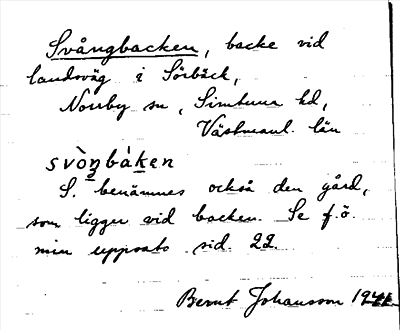 Svångbacken, backe vid
landsväg i Sörbäck,
Norrby sn, Simtuna hd,
Västmanl. län
svòŋbàken
S. benämnes också den gård,
som ligger vid backen. Se f.ö.
min uppsats sid. 22.
Bernt Johansson